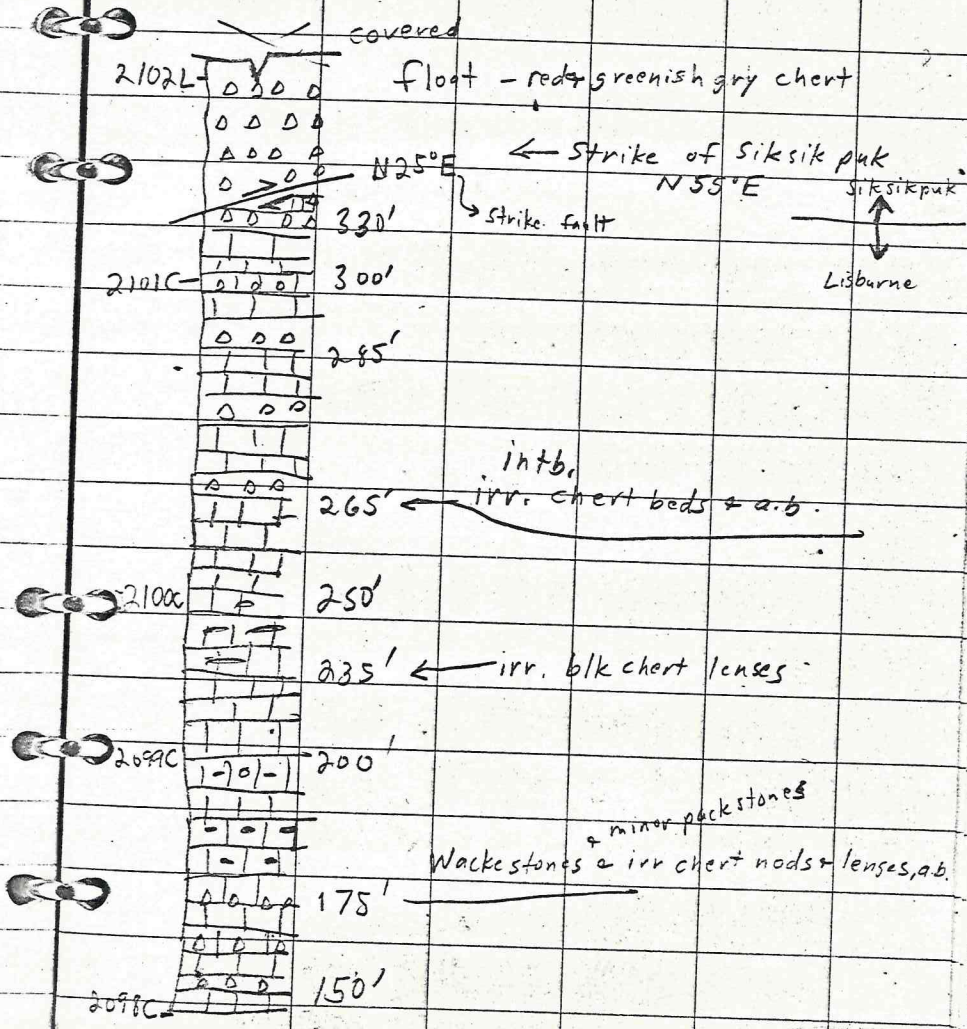 covered
2102L
float - red & greenish gry chert
← Strike of Siksikpuk
N 55°E
N 25°E
Siksikpuk
Strike fault
330'
Lisburne
2101C
300'
285'
intb.
irr. chert beds & a.b.
265'
2100C
250'
235' ← irr. blk chert lenses
2099C
200'
& minor packstones
Wackestones & irr chert nods & lenses, a.b.
175'
150'
2098C